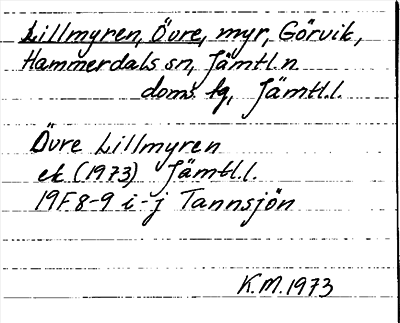 Lillmyren, Övre, myr, Görvik,
Hammerdals sn, Jämtl. n.
doms. lg, Jämtl.l.
Övre Lillmyren
ek (1973) Jämtl.l.
19F 8-9 i-j Tannsjön
K.M. 1973